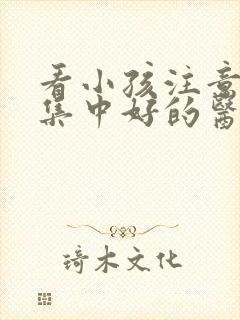 看小孩注意
集中好的醫
琦木文化